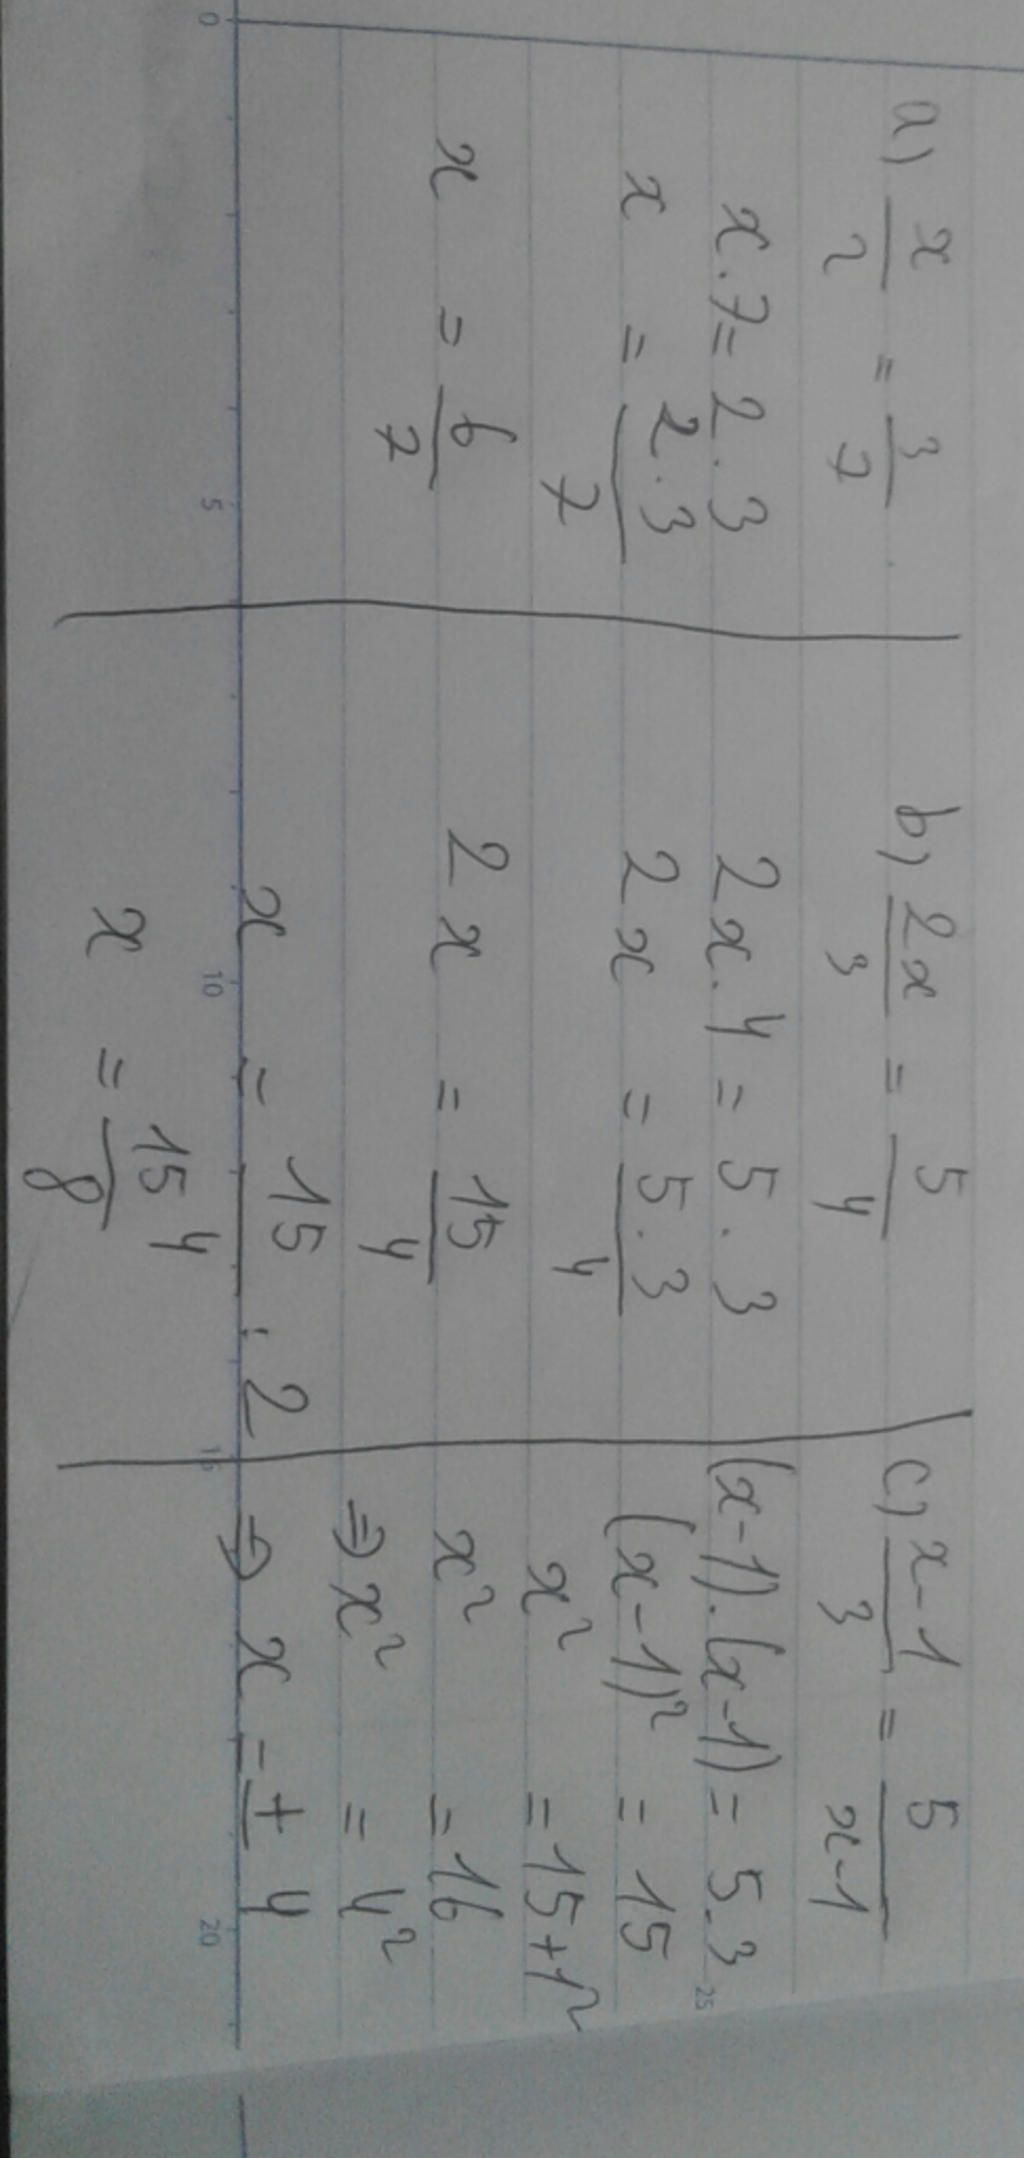 a) x/2 = 3/7
x.7 = 2.3
x = 2.3/7
x = 6/7
b) 2x/3 = 5/4
2x.4 = 5.3
2x = 5.3/4
2x = 15/4
x = 15/4 : 2
x = 15/8
c) x-1/3 = 5/x-1
(x-1).(x-1) = 5.3
(x-1)² = 15
x² = 15+1²
x² = 16
⇒ x² = 4²
⇒ x = ± 4
0
5
10
15
20
25